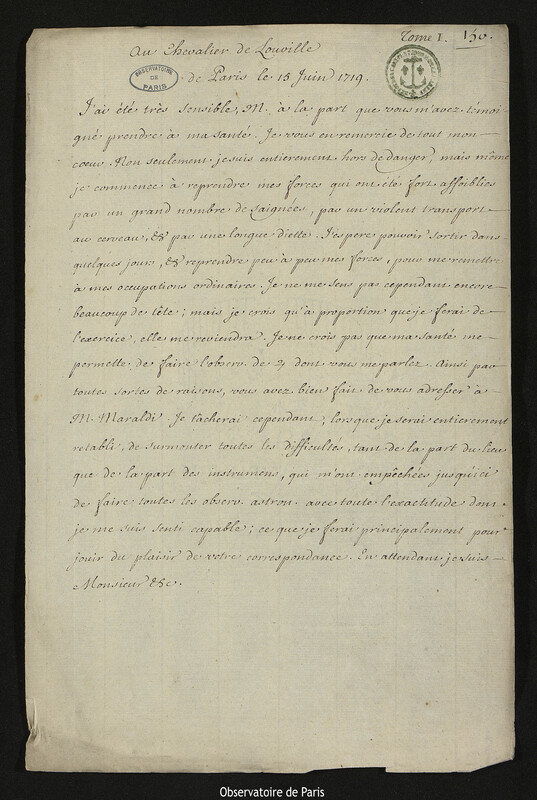 Tome I. 150.
Au Chevalier de Louville
OBSERVATOIRE DE PARIS
de Paris le 15 Juin 1719.
J'ai été très sensible, M. à la part que vous m'avez témoi
gné prendre à ma santé. Je vous en remercie de tout mon
coeur. Non seulement je suis entierement hors de danger, mais même
je commence à reprendre mes forces qui ont été fort affoiblies
par un grand nombre de saignées, par un violent transport
au cerveau, & par une longue diette. J'espere pouvoir sortir dans
quelques jours, & reprendre peu à peu mes forces, pour me remettre
à mes occupations ordinaires. Je ne me sens pas cependant encore
beaucoup de tête; mais je crois qu'à proportion que je ferai de
l'exercice, elle me reviendra. Je ne crois pas que ma santé me
permette de faire l'observ. de ♃ dont vous me parlez. Ainsi par
toutes sortes de raisons, vous avez bien fait de vous adresser à
M. Maraldi. Je tacherai cependant, lorsque je serai entierement
retabli, de surmonter toutes les difficultés, tant de la part du lieu
que de la part des instrumens, qui m'ont empêchées jusqu'ici
de faire toutes les observ. astron. avec toute l'exactitude dont
je me suis senti capable; ce que je ferai principalement pour
jouir du plaisir de votre correspondance. En attendant je suis
Monsieur &c.
Observatoire de Paris